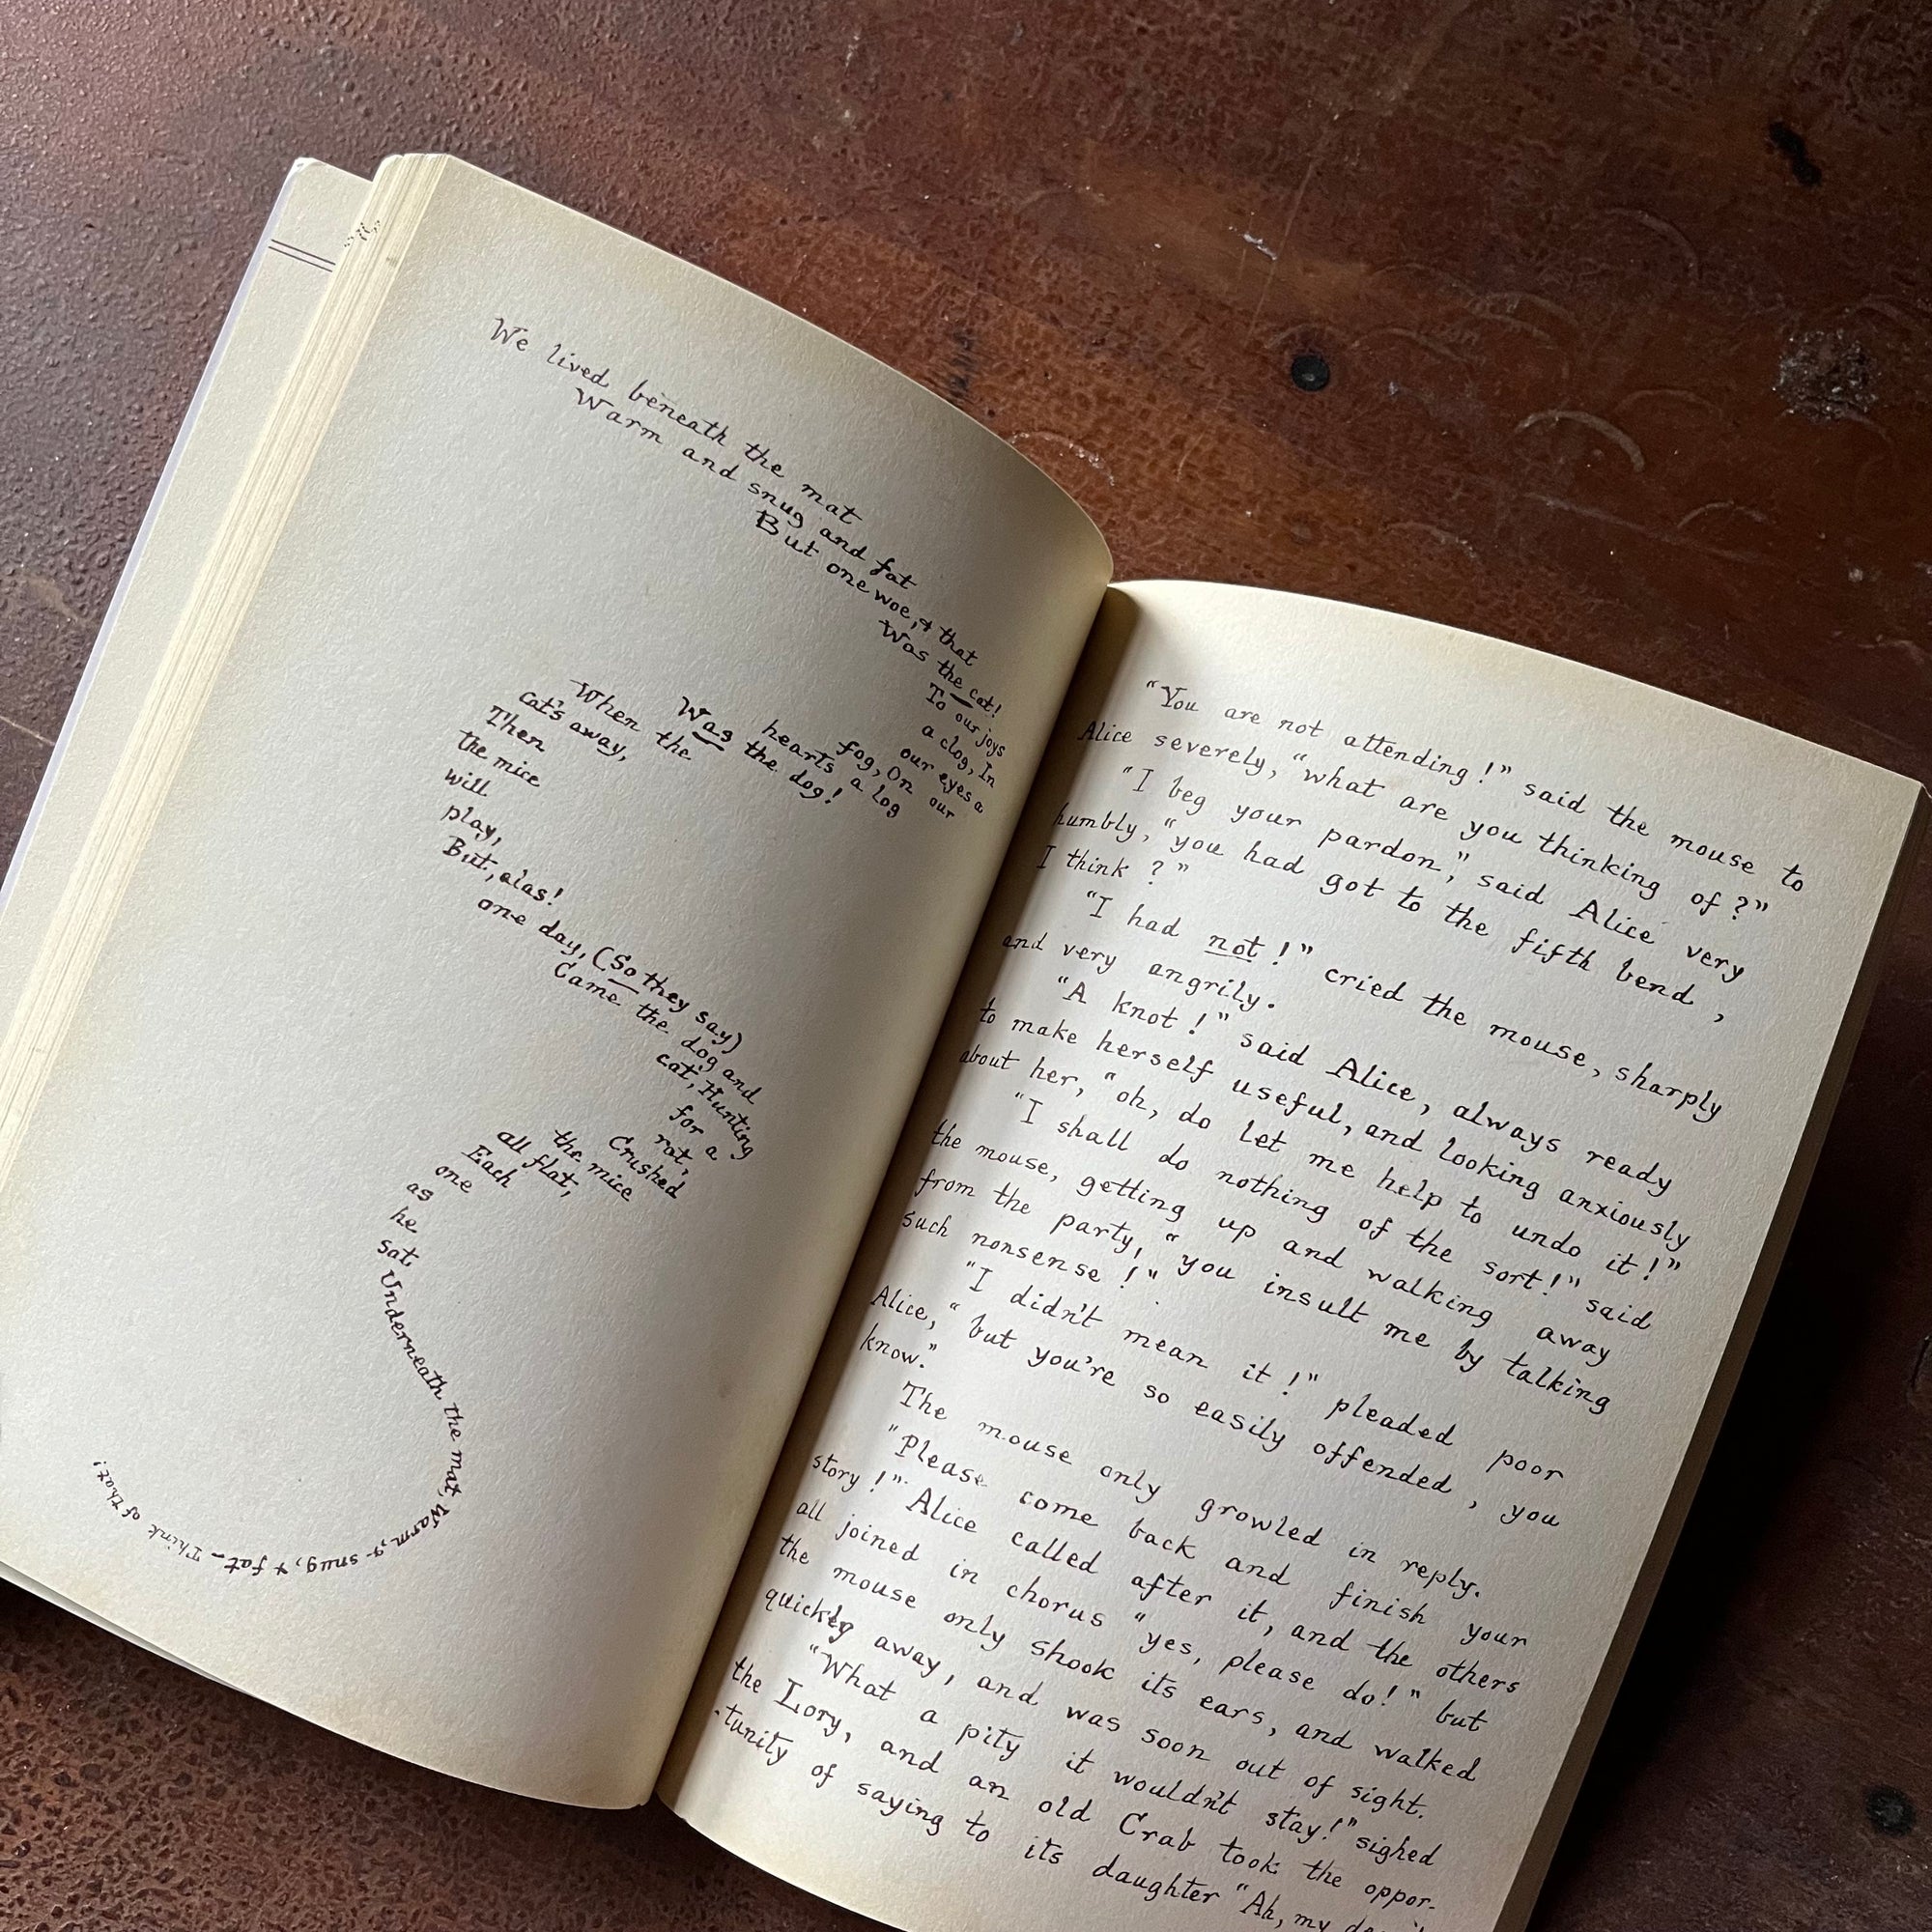 We lived beneath the mat
Warm and snug and fat
But one woe, & that
Was the cat!
To our joys
a clog, In
our eyes a
fog, On our
hearts a log
Was the dog!
When the
cat's away,
Then
the mice
will
play,
But, alas!
one day, (So they say)
Came the dog and
cat, Hunting
for a
rat,
Crushed
the mice
all flat,
Each
one
as
he
sat,
Underneath the mat, Warm, & snug, & fat_ Think of that!
"You are not attending!" said the mouse to
Alice severely, "what are you thinking of?"
"I beg your pardon," said Alice very
humbly, "you had got to the fifth bend,
I think?"
"I had not!" cried the mouse, sharply
and very angrily.
"A knot!" said Alice, always ready
to make herself useful, and looking anxiously
about her, "oh, do let me help to undo it!"
"I shall do nothing of the sort!" said
the mouse, getting up and walking away
from the party, "you insult me by talking
such nonsense!"
"I didn't mean it!" pleaded poor
Alice, "but you're so easily offended, you
know."
The mouse only growled in reply.
"Please come back and finish your
story!" Alice called after it, and the others
all joined in chorus "yes, please do!" but
the mouse only shook its ears, and walked
quickly away, and was soon out of sight.
"What a pity it wouldn't stay!" sighed
the Lory, and an old Crab took the oppor-
-tunity of saying to its daughter "Ah, my